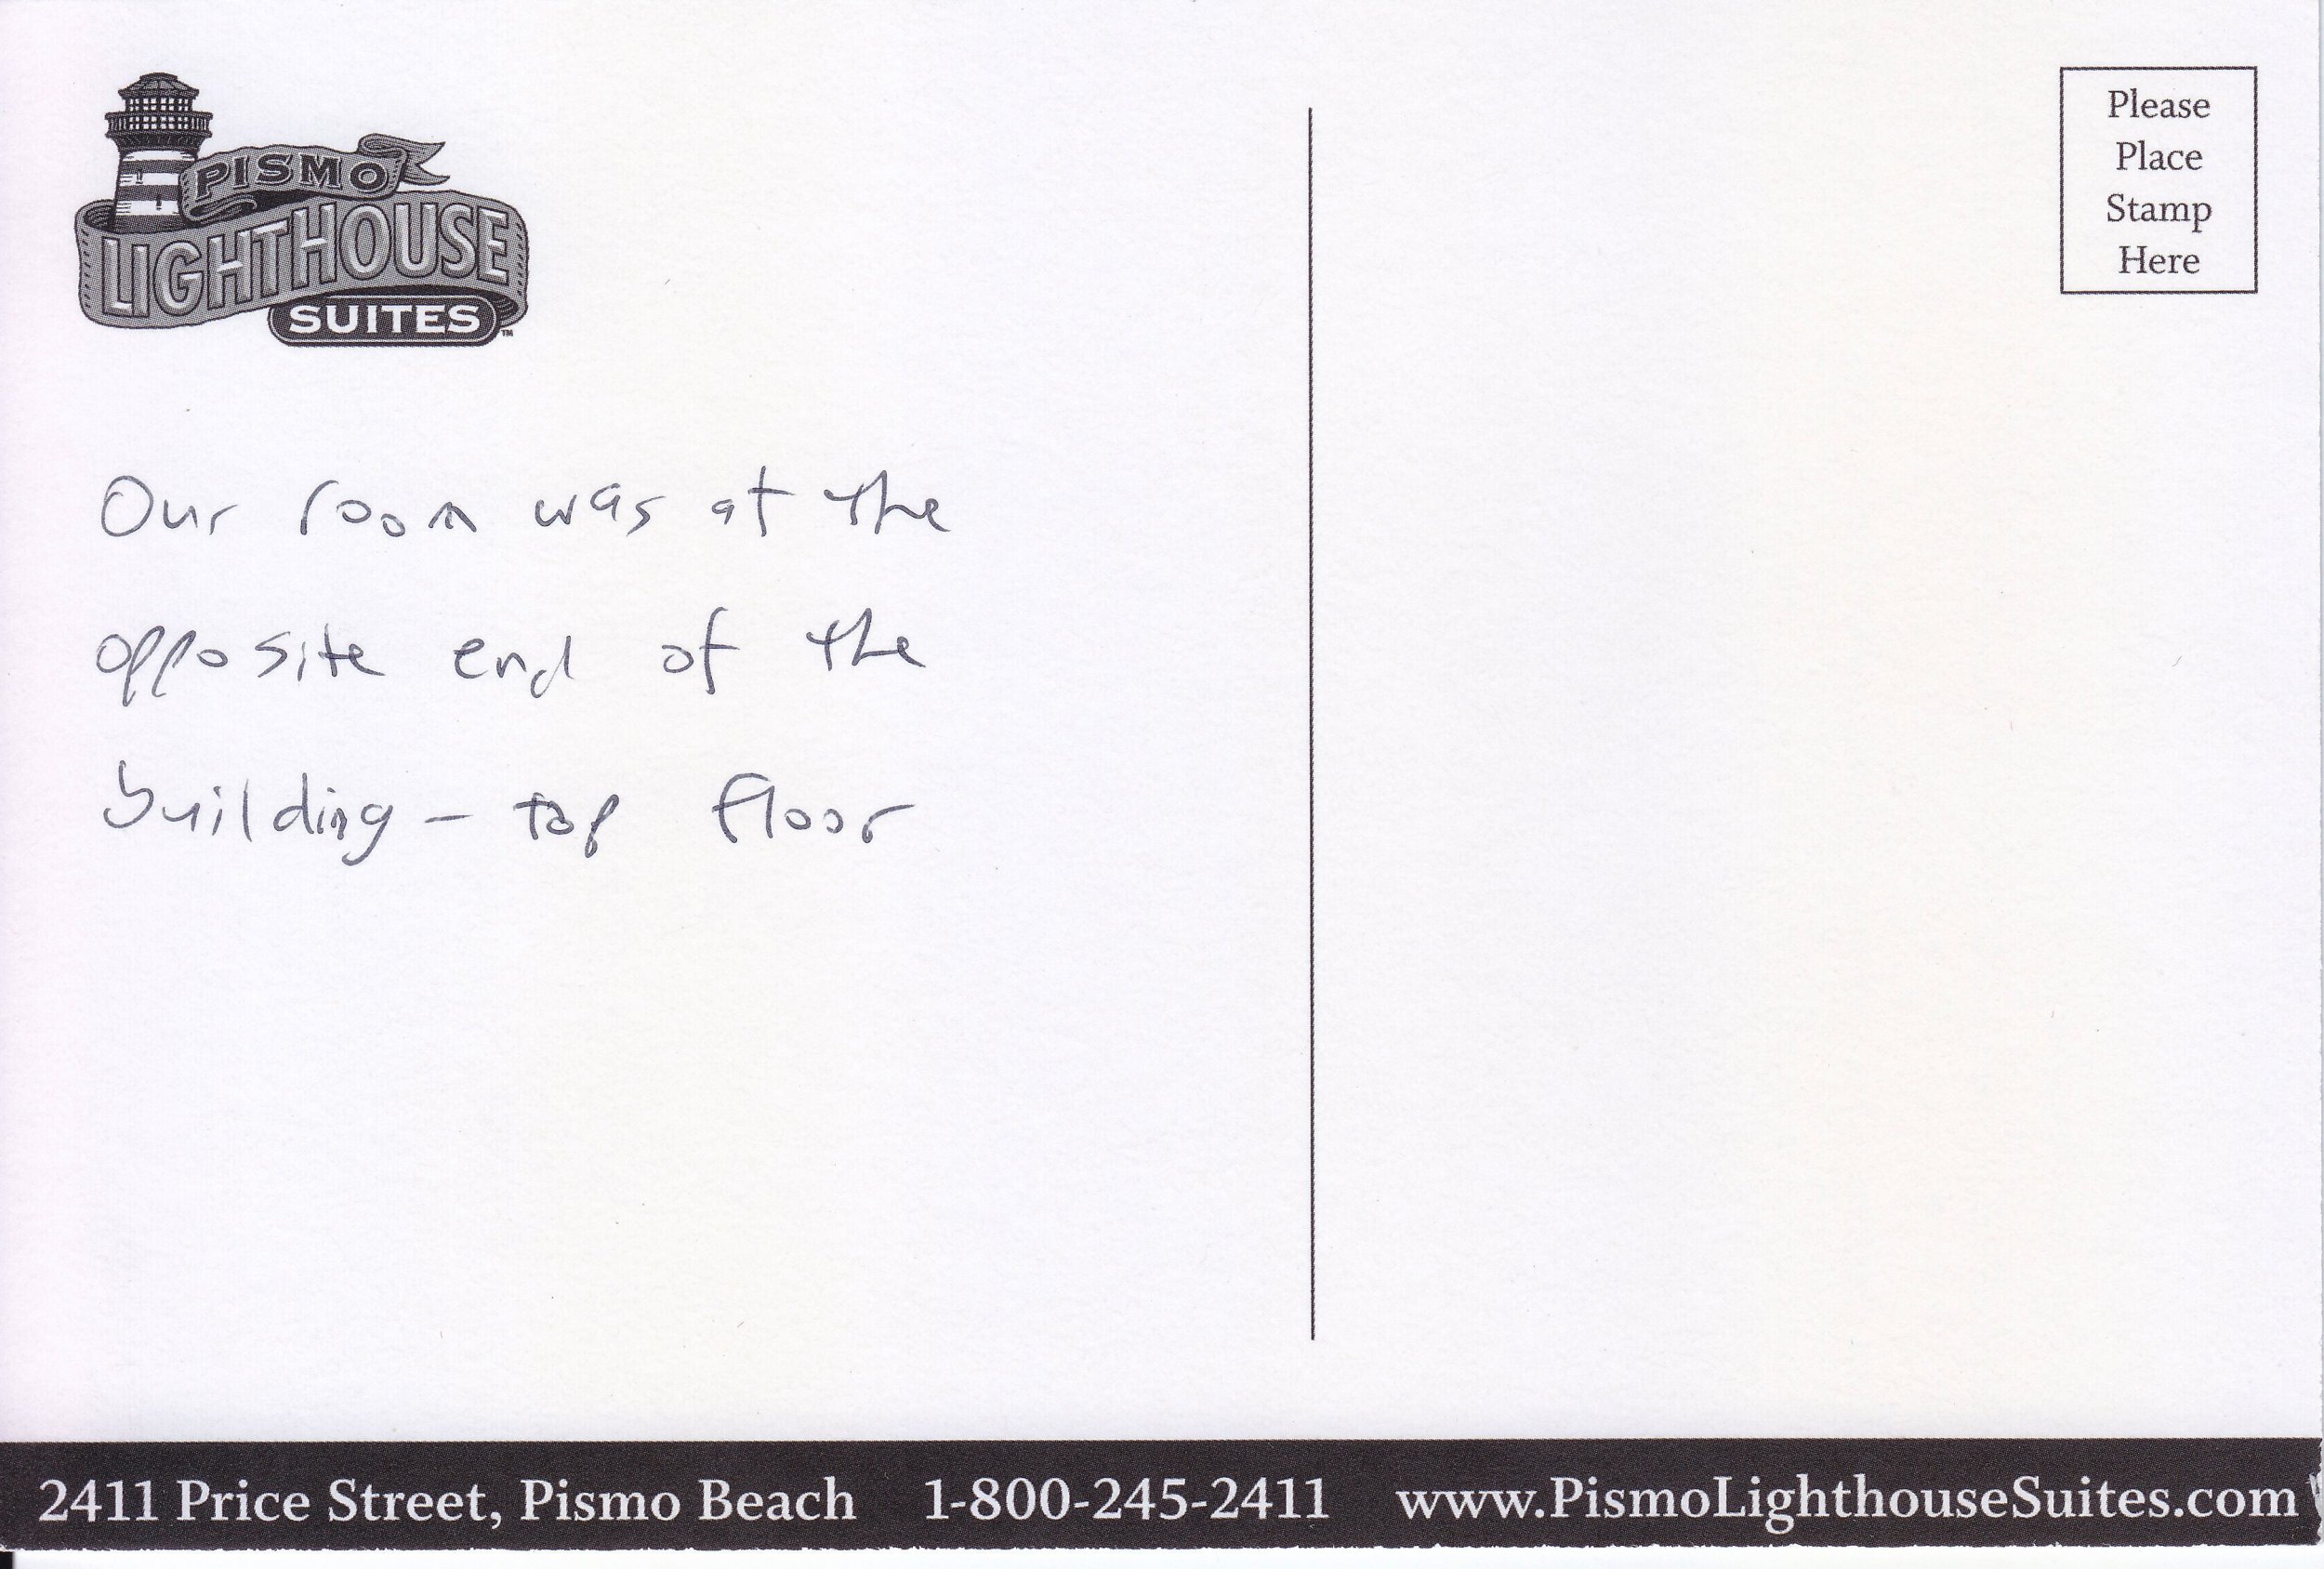 PISMO
LIGHTHOUSE
SUITES™
Please
Place
Stamp
Here
Our room was at the
opposite end of the
building - top floor
2411 Price Street, Pismo Beach 1-800-245-2411 www.PismoLighthouseSuites.com